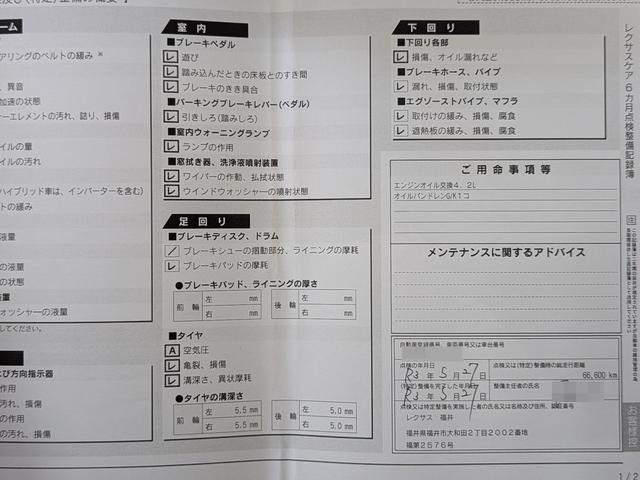 ーム
アリングのベルトの緩み※
、異音
加速の状態
ーエレメントの汚れ、詰り、損傷
イルの量
イルの汚れ
ハイブリッド車は、インバーターを含む)
トの緩み
液量
の液量
の状態
ォッシャーの液量
してください。
び方向指示器
作用
汚れ、損傷
の作用
の汚れ、損傷
室 内
■ブレーキペダル
レ 遊び
レ 踏み込んだときの床板とのすき間
レ ブレーキのきき具合
■パーキングブレーキレバー(ペダル)
レ 引きしろ(踏みしろ)
■室内ウォーニングランプ
レ ランプの作用
■窓拭き器、洗浄液噴射装置
レ ワイパーの作動、払拭状態
レ ウインドウォッシャーの噴射状態
足回り
■ブレーキディスク、ドラム
/ ブレーキシューの摺動部分、ライニングの摩耗
レ ブレーキパッドの摩耗
●ブレーキパッド、ライニングの厚さ
前輪 左 mm 後輪 左 mm
右 mm 右 mm
■タイヤ
A 空気圧
レ 亀裂、損傷
レ 溝深さ、異状摩耗
●タイヤの溝深さ
前輪 左 5.5 mm 後輪 左 5.0 mm
右 5.5 mm 右 5.0 mm
下回り
■下回り各部
レ 損傷、オイル漏れなど
■ブレーキホース、パイプ
レ 漏れ、損傷、取付状態
■エグゾーストパイプ、マフラ
レ 取付けの緩み、損傷、腐食
レ 遮熱板の緩み、損傷、腐食
ご用命事項等
エンジンオイル交換4.2L
オイルパンドレンG/K1コ
メンテナンスに関するアドバイス
自動車登録番号、車両番号又は車台番号
点検の年月日 点検又は(特定)整備時の総走行距離
R3 年 5 月 27 日 66,600 km
(特定)整備を完了した年月日 整備主任者の氏名
R3 年 5 月 27 日
点検又は特定整備を実施した者の氏名又は名称及び住所、認証番号
レクサス 福井
福井県福井市大和田2丁目2002番地
福第2576号
レクサスケア6カ月点検整備記録簿
お客様控
1/2